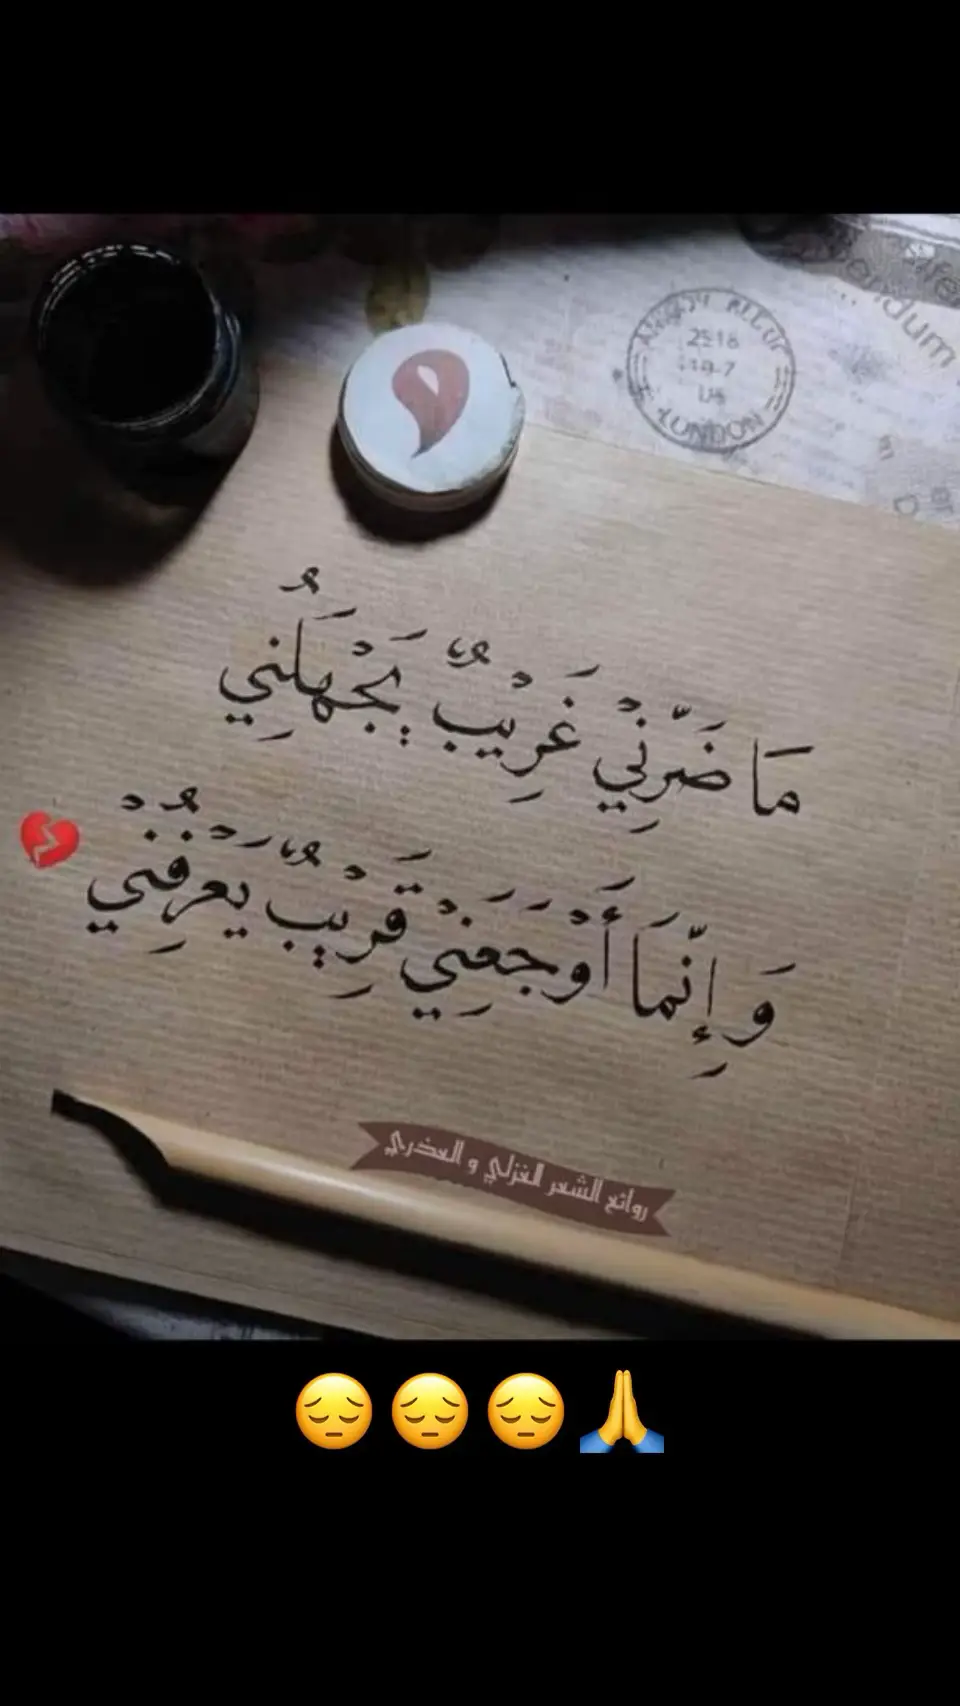 مَا ضَرَّنِيْ غَرِيْبٌ يَجْهَلُنِي
وَ إِنَّمَا أَوْجَعَنِيْ قَرِيْبٌ يَعْرِفُنِيْ 💔
روائع الشعر الغزلي و العذري
2518
19-7
LONDON
😔😔😔🙏